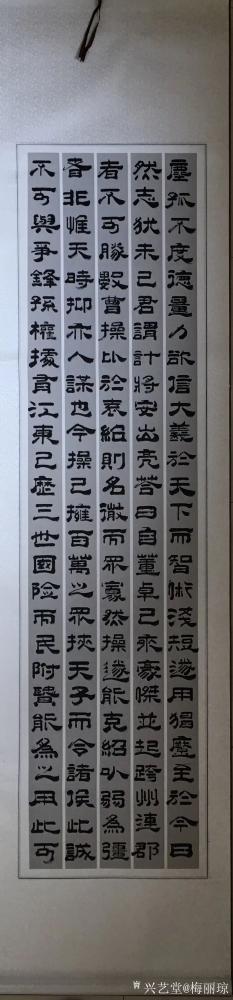 塵孤不度德量力欲信大義於天下而智術淺短遂用猖蹷至於今日
然志猶未已君謂計將安出亮答曰自董卓已來豪傑並起跨州連郡
者不可勝數曹操比於袁紹則名微而眾寡然操遂能克紹以弱為彊
者非惟天時抑亦人謀也今操已擁百萬之眾挾天子而令諸侯此誠
不可與爭鋒孫權據有江東已歷三世國險而民附賢能為之用此可
兴艺堂@梅丽琼